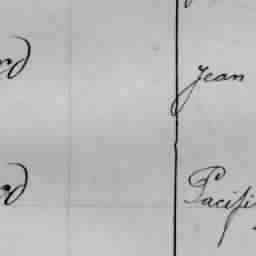 rd Jean
rd Pacifi